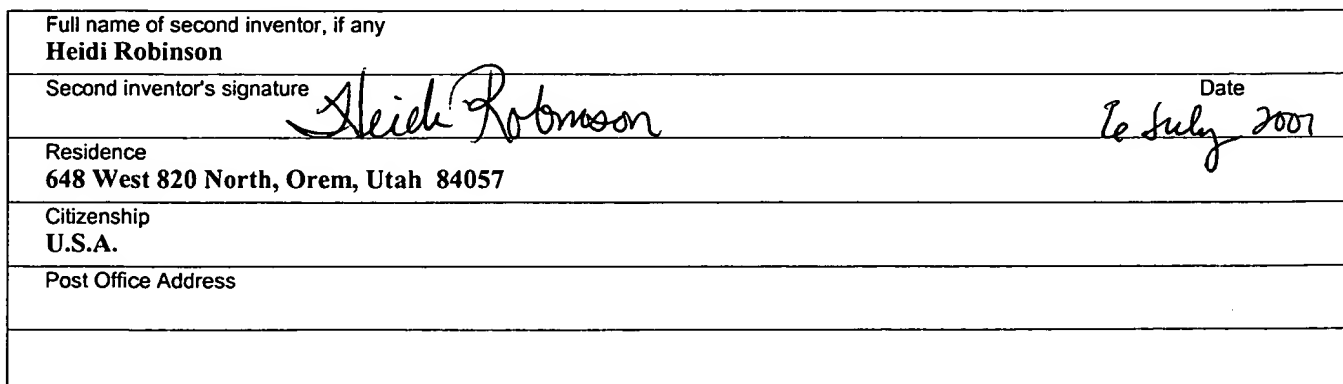 Full name of second inventor, if any
Heidi Robinson
Second inventor's signature Heidi Robinson
Date
6 July 2001
Residence
648 West 820 North, Orem, Utah 84057
Citizenship
U.S.A.
Post Office Address